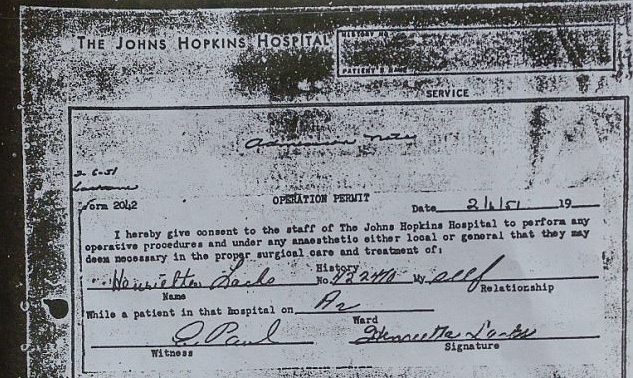 THE JOHNS HOPKINS HOSPITAL
HISTORY NO.
PATIENT'S NAME
SERVICE
Admission Note
2-6-51
Form 2042
OPERATION PERMIT
Date 2/6/51 19
I hereby give consent to the staff of The Johns Hopkins Hospital to perform any
operative procedures and under any anaesthetic either local or general that they may
deem necessary in the proper surgical care and treatment of:
Henrietta Lacks History No. My self
Name Relationship
While a patient in that hospital on
Ward
E Paul Henrietta Lacks
Witness Signature